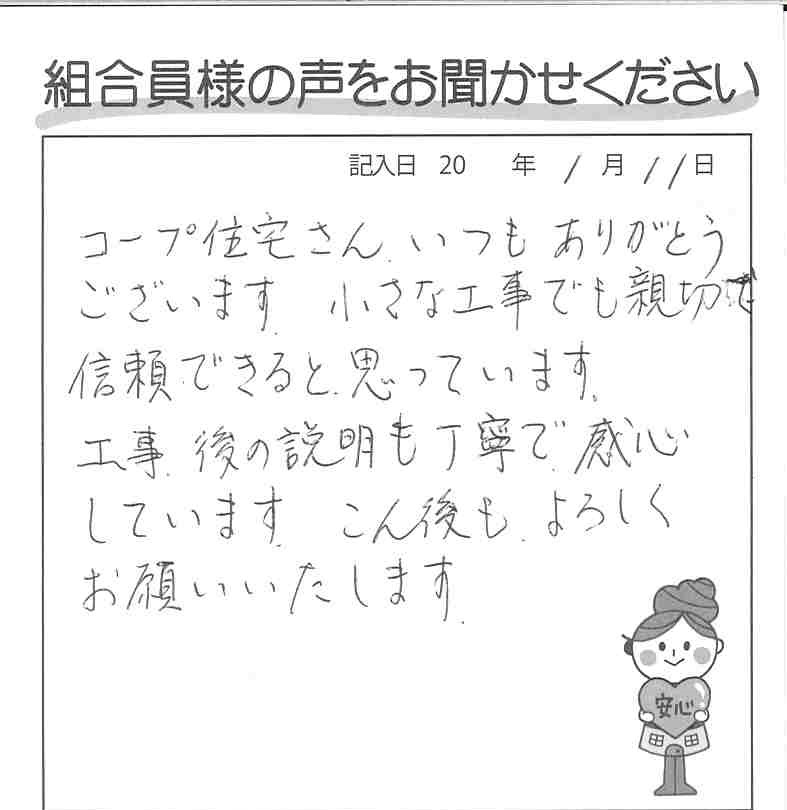 組合員様の声をお聞かせください
記入日 20 年 1月 11日
コープ住宅さん、いつもありがとう
ございます。小さな工事でも親切で
信頼できると、思っています。
工事、後の説明も丁寧で、感心
しています。こん後も、よろしく
お願いいたします。
安心